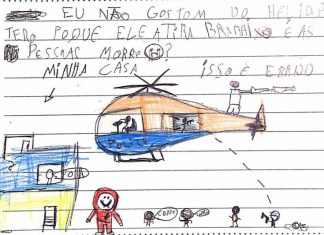 EU NÃO GOSTOM DO HELIOP
TERO POQUE ELE ATIRA BAXAIXO E AS
PESSOAS MORRE?
MINHA CASA ISSO É ERADO